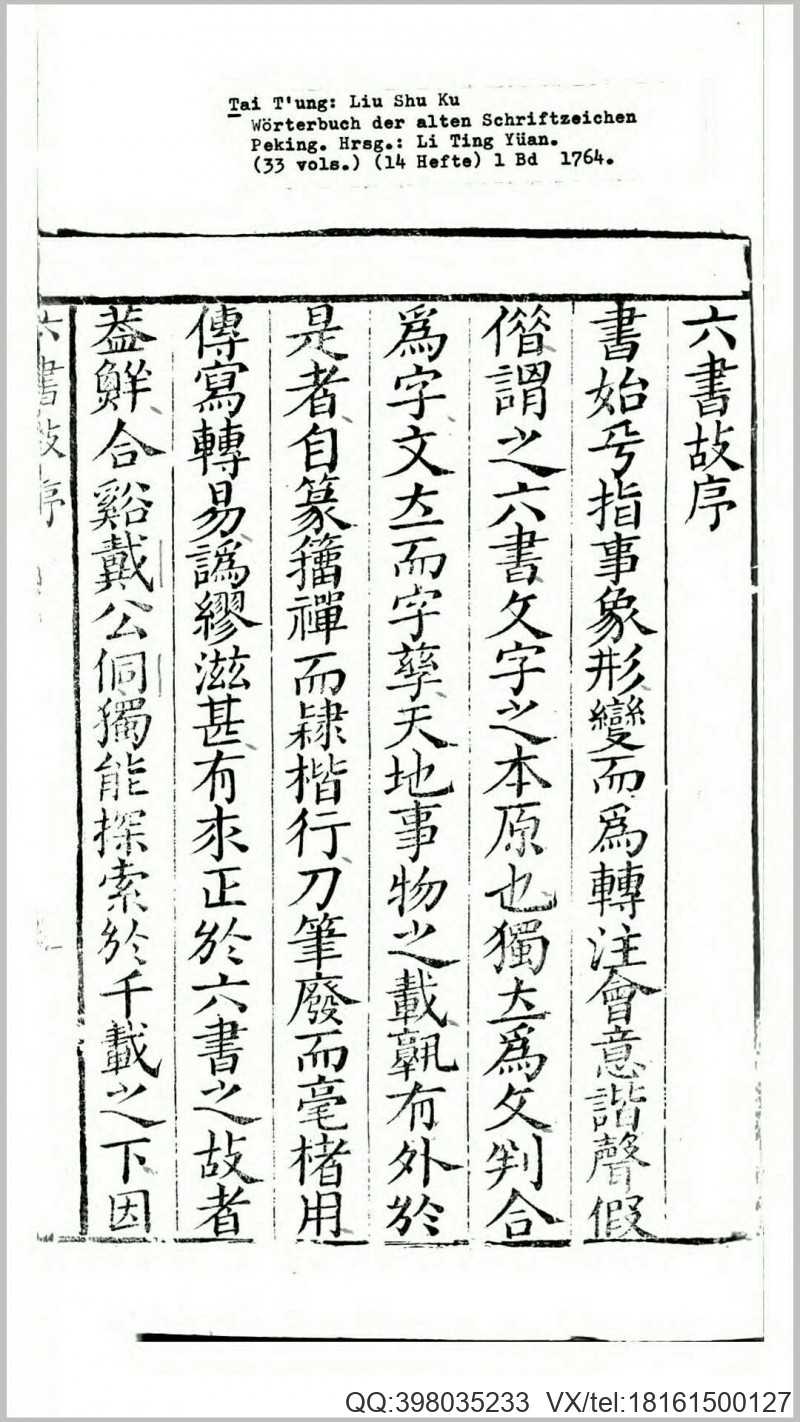 Tai T'ung: Liu Shu Ku
Wörterbuch der alten Schriftzeichen
Peking. Hrsg.: Li Ting Yüan.
(33 vols.) (14 Hefte) 1 Bd 1764.
六書故序
書始兮指事象形變而爲轉注會意諧聲假
偕謂之六書文字之本原也獨立爲文判合
爲字文立而字孳天地事物之載孰有外於
是者自篆籒禪而隸楷行刀筆廢而毫楮用
傳寫轉易譌繆滋甚有求正於六書之故者
葢鮮合谿戴公侗獨能探索於千載之下因
六書故序
QQ:398035233 VX/tel:18161500127